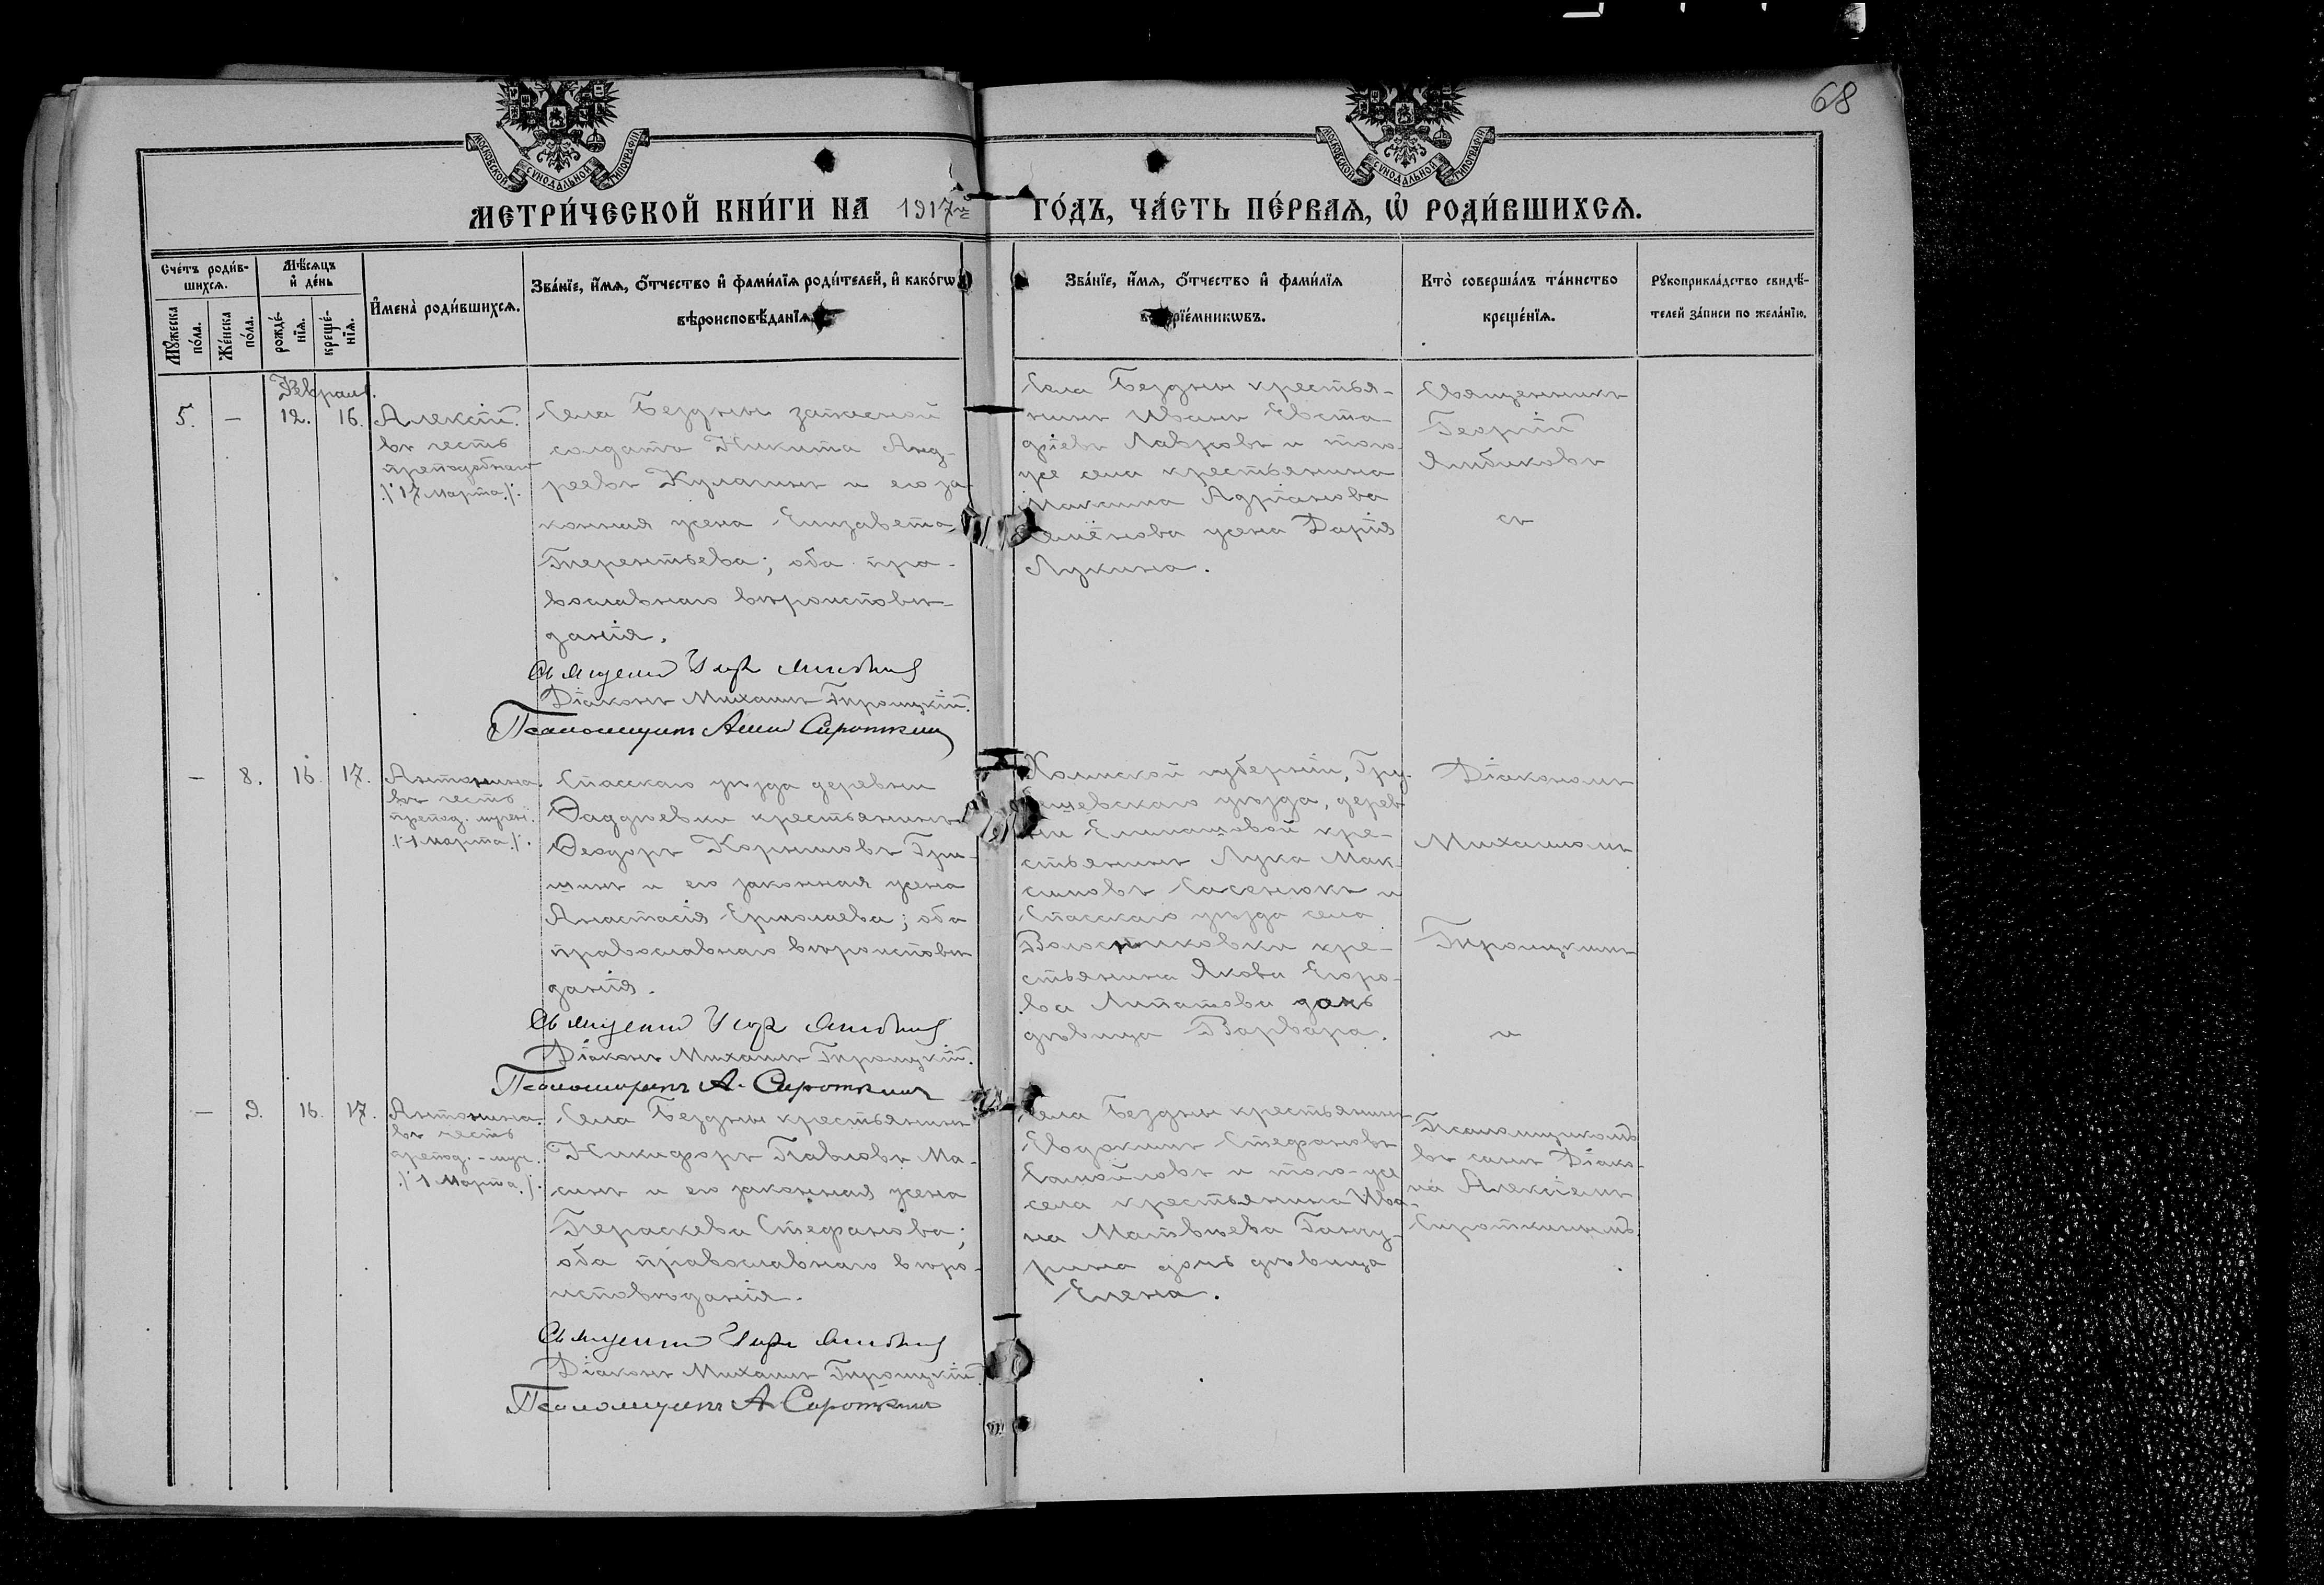 68
МОСКОВСКОЙ СѴНОДАЛЬНОЙ ТИПОГРАФІИ
МОСКОВСКОЙ СѴНОДАЛЬНОЙ ТИПОГРАФІИ
МЕТРИ́ЧЕСКОЙ КНИ́ГИ НА 1917 ГО́ДЪ, ЧА́СТЬ ПЕ́РВАЯ, Ѽ РОДИ́ВШИХСЯ.
Сче́тъ роди́в-
шихся.
Мѣ́сяцъ
и҆ де́нь
Мꙋ́жеска
по́ла.
Же́нска
по́ла.
рожде́-
нїя.
креще́-
нїя.
И҆мена̀ роди́вшихся.
Зва́нїе, и҆́мя, ѻ҆́тчество и҆ фами́лїя роди́телей, и҆ како́гѡ
вѣроисповѣ́данїя.
Зва́нїе, и҆́мя, ѻ҆́тчество и҆ фами́лїя
воспрїе́мникѡвъ.
Кто̀ соверша́лъ та́инство
креще́нїя.
Рꙋкоприкла́дство свидѣ́-
телей за́писи по жела́нїю.
Февраль.
5. — 12. 16.
Алексій.
въ честь
преподобнаго
/: 17 Марта :/.
Села Бездны запасной
солдатъ Никита Анд-
реевъ Кулагинъ и его за-
конная жена Елизавета
Терентьева; оба пра-
вославнаго вѣроисповѣ-
данія.
Діаконъ Михаилъ Троицкій.
Псаломщикъ Сироткинъ
Села Бездны крестья-
нинъ Иванъ Евста-
фіевъ Лавровъ и того-
же села крестьянина
Максима Адріанова
Семёнова жена Дарія
Лукина.
Священникъ
Георгій
Ямбиковъ
съ
— 8. 16. 17.
Антонина.
въ честь
препод. мучен.
/: 1 марта :/.
Спасскаго уѣзда деревни
Ѳаддѣевки крестьянинъ
Ѳеодоръ Корниловъ Гри-
шинъ и его законная жена
Анастасія Ермолаева; оба
православнаго вѣроисповѣ-
данія.
Діаконъ Михаилъ Троицкій.
Псаломщикъ А. Сироткинъ
Холмской губерніи, Гру-
бешевскаго уѣзда, дерев-
ни кре-
стьянинъ Лука Мак-
симовъ Сасенюкъ и
Спасскаго уѣзда села
Волостниковки кре-
стьянина Якова Егоро-
ва Липатова дочь
дѣвица Варвара.
Діакономъ
Михаиломъ
Троицкимъ
и
— 9. 16. 17.
Антонина.
въ честь
препод. - муч.
/: 1 Марта :/.
Села Бездны крестьянинъ
Никифоръ Павловъ Ма-
синъ и его законная жена
Параскева Стефанова;
оба православнаго вѣро-
исповѣданія.
Діаконъ Михаилъ Троицкій.
Псаломщикъ А Сироткинъ
Села Бездны крестьянинъ
Евдокимъ Стефановъ
Самойловъ и того-же
села крестьянина Ива-
на Матвѣева
дочь дѣвица
Елена.
Псаломщикомъ
въ санѣ Діако-
на Алексіемъ
Сироткинымъ.